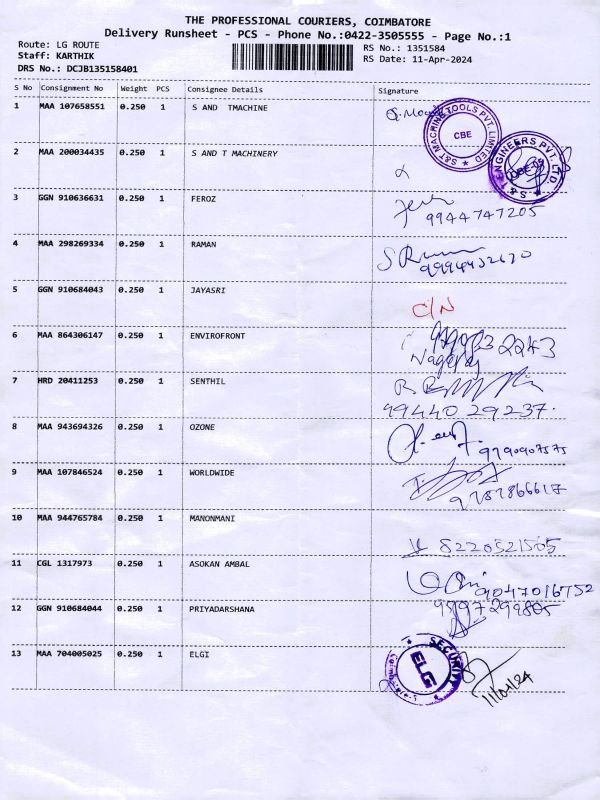 THE PROFESSIONAL COURIERS, COIMBATORE
Delivery Runsheet - PCS - Phone No.:0422-3505555 - Page No.:1
Route: LG ROUTE
Staff: KARTHIK
DRS No.: DCJB135158401
RS No.: 1351584
RS Date: 11-Apr-2024
S No Consignment No Weight PCS Consignee Details Signature
1 MAA 107658551 0.250 1 S AND TMACHINE
S&T MACHINE TOOLS PVT. LIMITED
CBE
2 MAA 200034435 0.250 1 S AND T MACHINERY
S & T ENGINEERS PVT. LTD.
3 GGN 910636631 0.250 1 FEROZ
9944747205
4 MAA 298269334 0.250 1 RAMAN
S Raman
5 GGN 910684043 0.250 1 JAYASRI C/N
6 MAA 864306147 0.250 1 ENVIROFRONT
7 HRD 20411253 0.250 1 SENTHIL
99440 29237.
8 MAA 943694326 0.250 1 OZONE
9790907575
9 MAA 107846524 0.250 1 WORLDWIDE
10 MAA 944765784 0.250 1 MANONMANI 8220521505
11 CGL 1317973 0.250 1 ASOKAN AMBAL
9047016752
12 GGN 910684044 0.250 1 PRIYADARSHANA
13 MAA 704005025 0.250 1 ELGI
SECURITY
ELGI
11/04/24